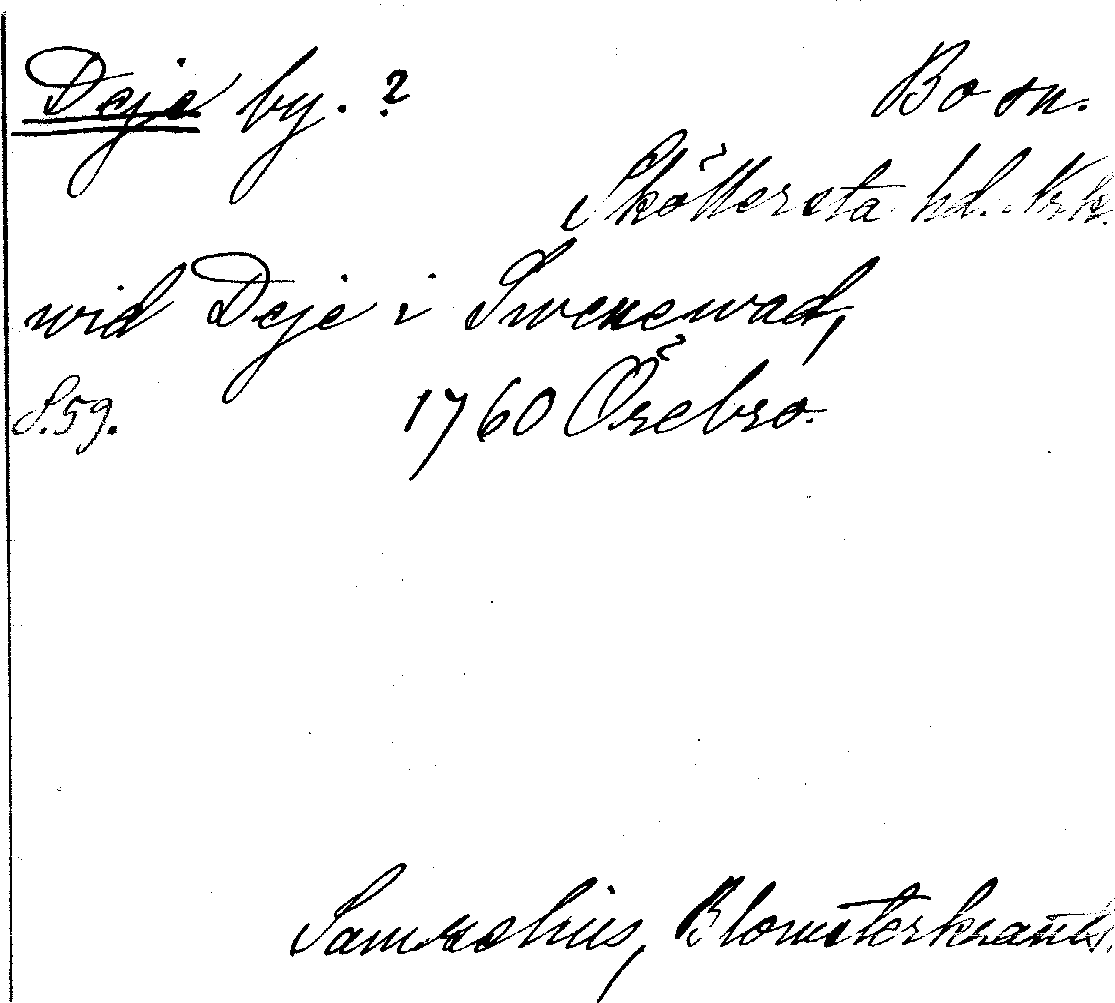 Deje by. ? Bo sn.
Sköllersta hd. Nrk.
wid Deje i Swenewad,
S.59. 1760 Örebro.
Samzelius, Blomsterkrants.